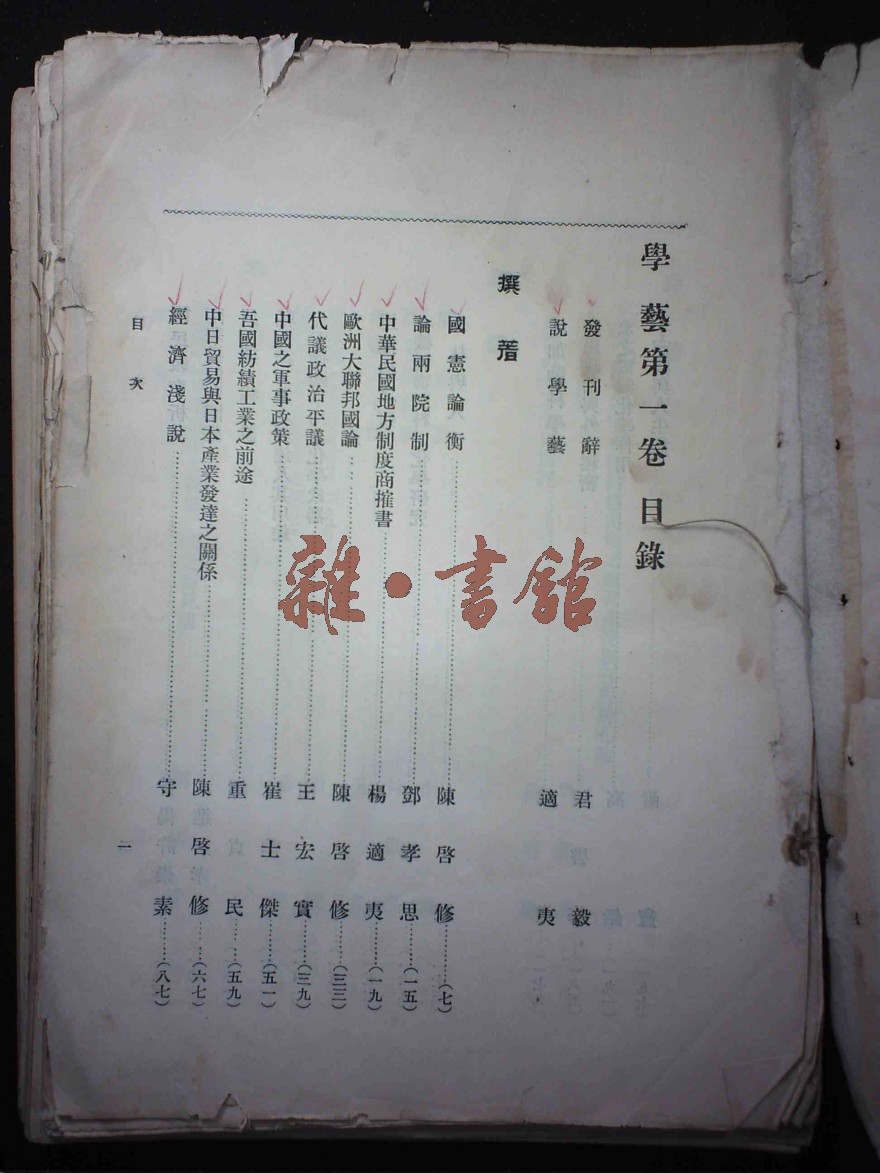 學藝第一卷目錄
發刊辭 君毅
說學藝 適夷
撰著
國憲論衡……陳啓修……(七)
論兩院制……鄧孝思……(一五)
中華民國地方制度商搉書……楊適夷……(一九)
歐洲大聯邦國論……陳啓修……(三三)
代議政治平議……王宏實……(三九)
中國之軍事政策……崔士傑……(五一)
吾國紡績工業之前途……重民……(五九)
中日貿易與日本產業發達之關係……陳啓修……(六七)
經濟淺說……守素……(八七)
目次
一
雜·書館